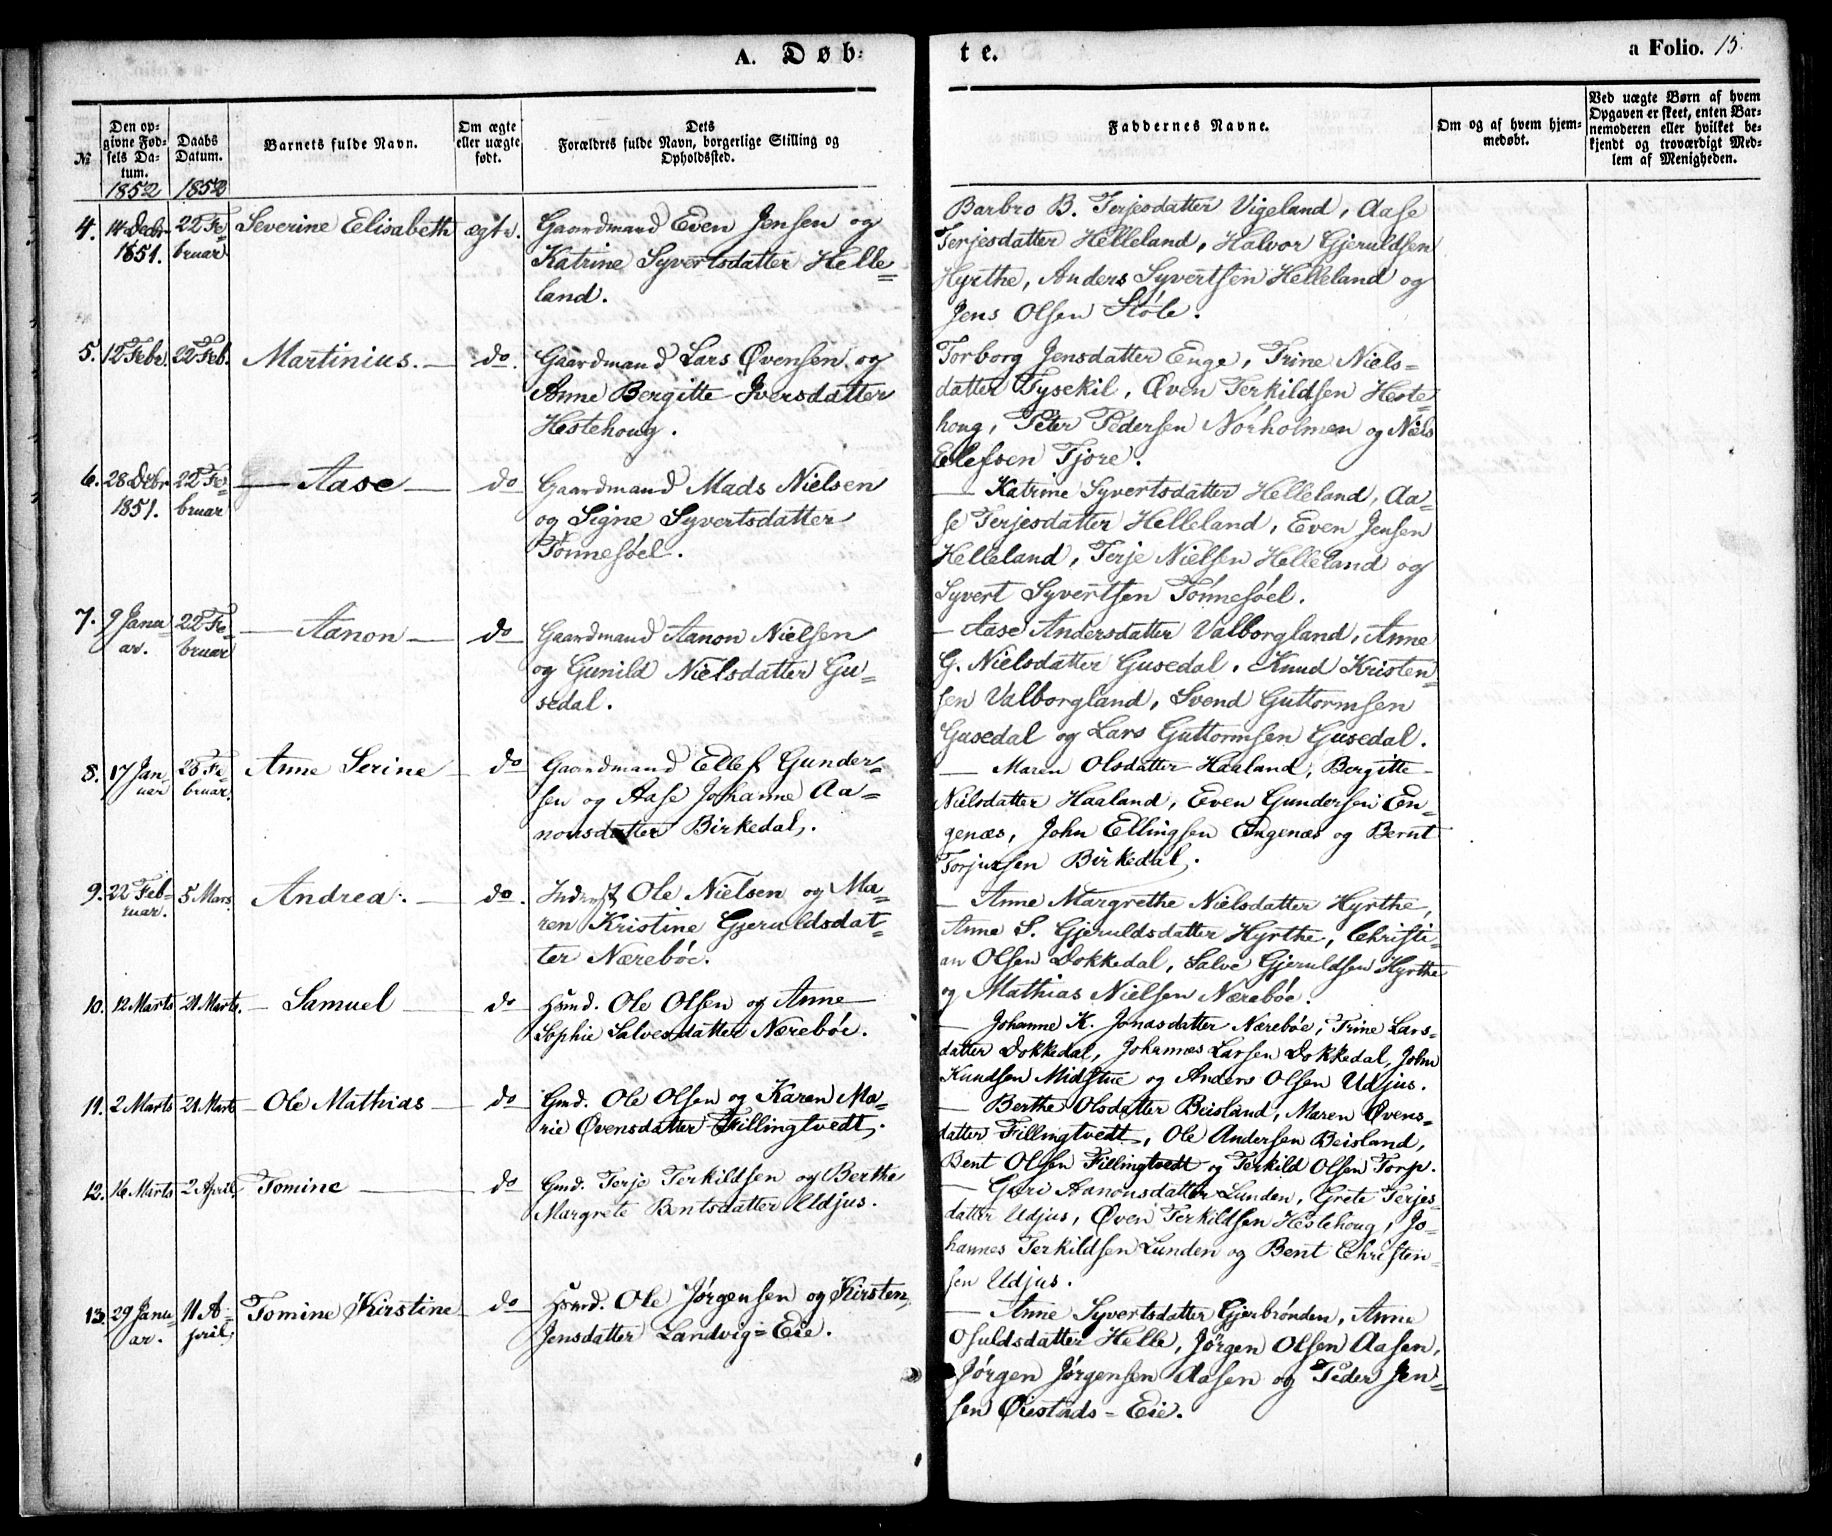 A. Døb-
te.
a Folio. 15.
№
Den op-
givne Fød-
sels Da-
tum.
1852
Daabs
Datum.
1852
Barnets fulde Navn.
Om ægte
eller uægte
født.
Dets
Forældres fulde Navn, borgerlige Stilling og
Opholdssted.
Faddernes Navne.
Om og af hvem hjem-
medøbt.
Ved uægte Børn af hvem
Opgaven er skeet, enten Bar-
nemoderen eller hvilket be-
kjendt og troværdigt Med-
lem af Menigheden.
4. 14 Decbr 22 Fe- Severine Elisabeth ægte. Gaardmand Even Jensen og
1851. bruar Katrine Syvertsdatter Helle-
land.
Barbro B. Terjesdatter Vigeland, Aase
Terjesdatter Helleland, Halvor Gjeruldsen
Hyrthe, Anders Syvertsen Helleland og
Jens Olsen Støle.
5. 12 Febr. 22 Feb. Martinius. — do. Gaardmand Lars Øvensen og
Anne Bergitte Iversdatter
Hestehoug.
Torborg Jensdatter Enge, Trine Niels-
datter Tysekil, Øven Terkildsen Heste-
houg, Peter Pedersen Nørholmen og Niels
Elefsen Tjore.
6. 28 Decbr 22 Fe- — Aase — do Gaardmand Mads Nielsen
1851. bruar og Signe Syvertsdatter
Tønnesøel.
— Katrine Syvertsdatter Helleland, Aa-
se Terjesdatter Helleland, Even Jensen
Helleland, Terje Nielsen Helleland og
Syvert Syvertsen Tønnesøel.
7. 9 Janu- 22 Fe- — Aanon — do Gaardmand Aanon Nielsen
ar. bruar og Gunild Nielsdatter Gu-
sedal.
— Aase Andersdatter Valborgland, Anne
G. Nielsdatter Gusedal, Knud Kristen-
sen Valborgland, Svend Guttormsen
Gusedal og Lars Guttormsen Gusedal.
8. 17 Jan 25 Fe- Anne Serine — do Gaardmand Ellef Gunder-
uar bruar. sen og Aase Johanne Aa-
nonsdatter Birkedal.
— Maren Olsdatter Haaland, Bergitte
Nielsdatter Haaland, Even Gundersen En-
genæs, John Ellingsen Engenæs og Bernt
Torjussen Birkedal.
9. 22 Feb- 5 Mars. Andrea. — do. Inderst Ole Nielsen og Ma-
ruar. ren Kristine Gjeruldsdat-
ter Nærebøe.
— Anne Margrethe Nielsdatter Hyrthe,
Anne S. Gjeruldsdatter Hyrthe, Christi-
an Olsen Dokkedal, Salve Gjeruldsen Hyrthe
og Mathias Nielsen Nærebøe.
10. 12 Marts 21 Marts. — Samuel — do Hsmd. Ole Olsen og Anne
Sophie Salvesdatter Nærebøe.
— Johanne K. Jonasdatter Nærebøe, Trine Lars-
datter Dokkedal, Johannes Larsen Dokkedal, John
Knudsen Midstue og Anders Olsen Udjus.
11. 2 Marts 21 Marts — Ole Mathias — do Gmd. Ole Olsen og Karen Ma-
rie Øvensdatter Fillingtvedt.
— Berthe Olsdatter Beisland, Maren Øvens-
datter Fillingtvedt, Ole Andersen Beisland,
Bent Olsen Fillingtvedt og Terkild Olsen Torp.
12. 16 Marts 2 April, Tomine — do Gmd. Terje Terkildsen og Berthe
Margrete Bentsdatter Udjus.
— Guri Aanonsdatter Lunden, Grete Terjes-
datter Udjus, Øven Terkildsen Hestehoug, Jo-
hannes Terkildsen Lunden og Bent Christen-
sen Udjus.
13. 29 Janu- 11 A- Tomine Kirstine — do Hsmd. Ole Jørgensen og Kirsten
ar. pril, Jensdatter Landvig-Eie.
— Anne Syvertsdatter Gjerbrønden, Anne
Osuldsdatter Helle, Jørgen Olsen Aasen,
Jørgen Jørgensen Aasen og Peder Jen-
sen Øiestads-Eie.